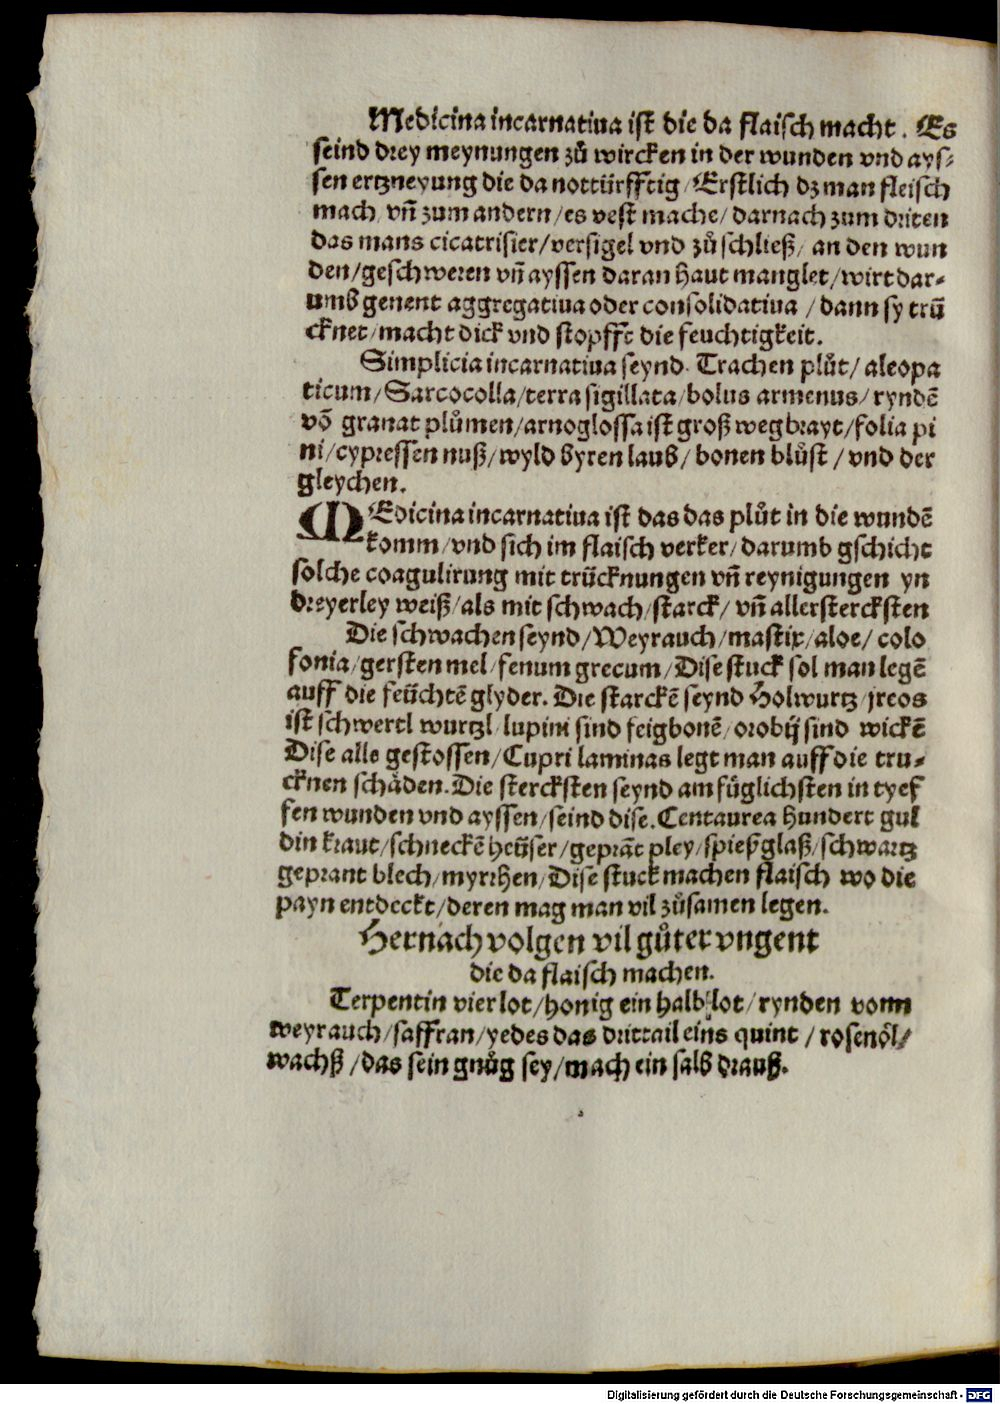 Medicina incarnatiua ist die da flaisch macht. Es
seind drey meynungen zů wircken in der wunden vnd ays⸗
sen ertzneyung die da nottürfftig/Erstlich dz man fleisch
mach vñ zum andern/es vest mache/darnach zum driten
das mans cicatrisier/versigel vnd zů schließ/an den wun
den/geschweren vñ ayssen daran haut manglet/wirt dar⸗
umb genent aggregatiua oder consolidatiua/dann sy trü
cknet/macht dick vnd stopfft die feuchtigkeit.
Simplicia incarnatiua seynd. Trachen plůt/aleopa
ticum/Sarcocolla/terra sigillata/bolus armenus/ryndē
vō granat plůmen/arnoglossa ist groß wegbrayt/folia pi
ni/cypressen nuß/wyld byren laub/bonen blůst/vnd der
gleychen.
MEdicina incarnatiua ist das das plůt in die wundē
komm/vnd sich im flaisch verker/darumb gschicht
solche coagulirung mit trücknungen vñ reynigungen yn
dreyerley weiß/als mit schwach/starck/vñ allerstercksten
Die schwachen seynd/Weyrauch/mastix/aloe/colo
fonia/gersten mel/fenum grecum/Dise stuck sol man legē
auff die feüchtē glyder. Die starckē seynd Holwurtz/jreos
ist schwertl wurtzl/lupini sind feigbonē/orobij sind wickē
Dise alle gestossen/Cupri laminas legt man auff die tru⸗
cknen schäden. Die stercksten seynd am füglichsten in tyef
fen wunden vnd ayssen/seind dise. Centaurea hundert gul
din kraut/schneckē heüser/geprāt pley/spießglaß/schwartz
geprant blech/myrrhen/Dise stuck machen flaisch wo die
payn entdeckt/deren mag man vil zůsamen legen.
Hernach volgen vil gůter vngent
die da flaisch machen.
Terpentin vier lot/honig ein halb lot/rynden vonn
weyrauch/saffran/yedes das drittail eins quint/rosenöl/
wachß/das sein gnůg sey/mach ein salb drauß.
Digitalisierung gefördert durch die Deutsche Forschungsgemeinschaft - DFG